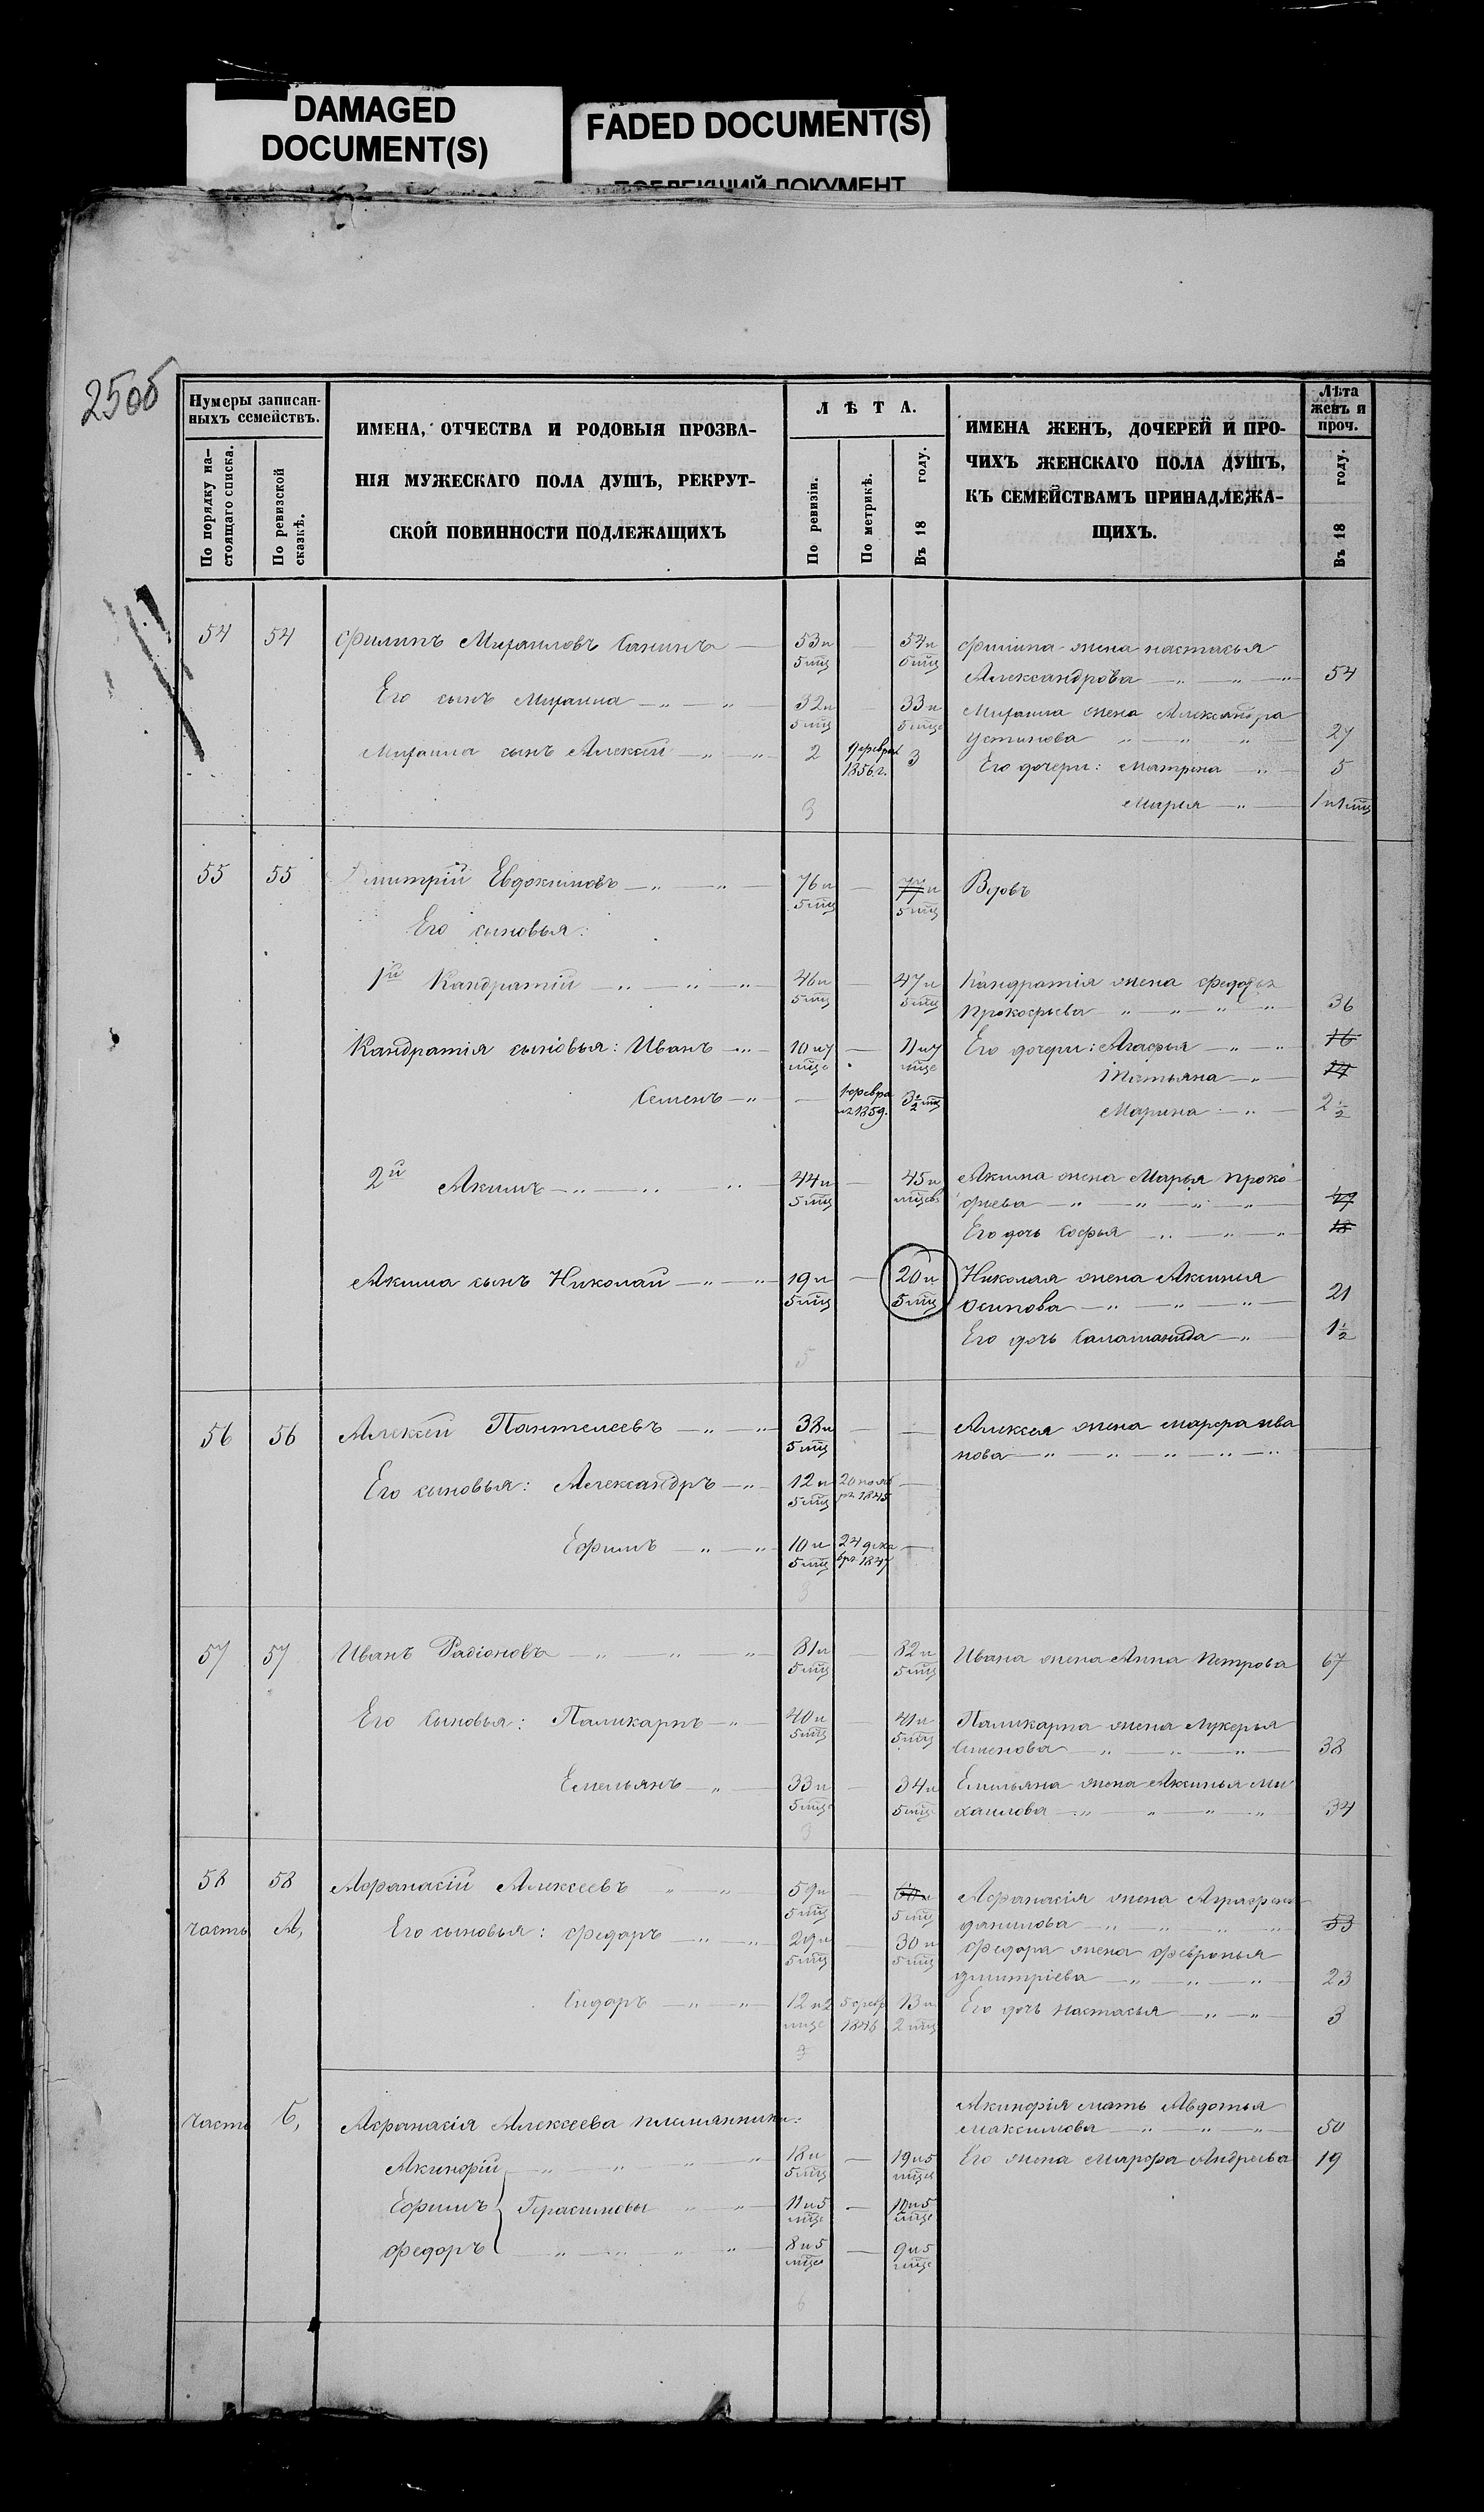 DAMAGED
DOCUMENT(S)
FADED DOCUMENT(S)
250б
Нумеры записан-
ныхъ семействъ.
По порядку на-
стоящаго списка.
По ревизской
сказкѣ.
ИМЕНА, ОТЧЕСТВА И РОДОВЫЯ ПРОЗВА-
НІЯ МУЖЕСКАГО ПОЛА ДУШЪ, РЕКРУТ-
СКОЙ ПОВИННОСТИ ПОДЛЕЖАЩИХЪ
ЛѢТА.
По ревизіи.
По метрикѣ.
Въ 18 году.
ИМЕНА ЖЕНЪ, ДОЧЕРЕЙ И ПРО-
ЧИХЪ ЖЕНСКАГО ПОЛА ДУШЪ,
КЪ СЕМЕЙСТВАМЪ ПРИНАДЛЕЖА-
ЩИХЪ.
Лѣта
женъ и
проч.
Въ 18 году.
54 54 Филипъ Михаиловъ Санинъ — 53 и 5 мцъ — 54 и 5 мцъ Филипа жена настасья
Александрова — „ — „ — „ 54
Его сынъ Михаила — „ — „ 32 и 5 мцъ — 33 и 5 мцъ Михаила жена Александра
Устинова „ — „ „ — 27
Михаила сынъ Алексѣй — „ — „ 2 9 феврал 1856 г. 3 Его дочери: Матрена — „ — 5
3 Марья — „ — 1 и 1 мцъ
55 55 Дмитрій Евдокимовъ — „ — „ — 76 и 5 мцъ — 77 и 5 мцъ Вдовъ
Его сыновья:
1й Кандратій — „ — „ — „ 46 и 5 мцъ — 47 и 5 мцъ Кандратія жена Федосья
Прокофьева — „ — „ — „ — „ 36
Кандратія сыновья: Иванъ — „ — 10 и 7 мцъ — 11 и 7 мцъ Его дочери: Агафья — „ — „ 16
Татьяна — „ — 14
Семенъ — „ — 1 февра 1859. 3 1/2 мцъ Марина — „ — 2 1/2
2й Акимъ — „ — „ „ — 44 и 5 мцъ — 45 и мцъ Акима жена Марья Проко
фьева — „ — „ — „ — „ — 47
Его дочь Софья — „ — „ — „ 18
Акима сынъ Николай — „ — „ 19 и 5 мцъ — 20 и 5 мцъ Николая жена Аксинья
Осипова — „ — „ — „ — 21
5 Его дочь Саламанида — „ — 1 1/2
56 56 Алексѣй Пантелеевъ — „ — „ 38 и 5 мцъ — — Алексѣя жена марфа ива
нова — „ — „ — „ — „ — „
Его сыновья: Александръ — „ — 12 и 5 мцъ 20 нояб ря 1845 —
Ефимъ — „ — „ 10 и 5 мцъ 24 дека бря 1847 —
3
57 57 Иванъ Радіоновъ — „ — „ — „ 81 и 5 мцъ — 82 и 5 мцъ Ивана жена Анна Петрова 67
Его Сыновья: Паликарпъ — „ — 40 и 5 мцъ — 41 и 5 мцъ Паликарпа жена Лукерья
Семенова — „ — „ — „ — 38
Емельянъ — „ — 33 и 5 мцъ — 34 и 5 мцъ Емельяна жена Аксинья Ми
хаилова — „ — „ — „ — „ 34
3
58 58 Афанасій Алексѣевъ „ — „ 59 и 5 мцъ — 60 и 5 мцъ Афанасія жена Аграфена
данилова — „ — „ — „ — „ 53
часть А, Его сыновья: Федоръ — „ — „ 29 и 5 мцъ — 30 и 5 мцъ Федора жена Февронья
Дмитріева — „ — „ — „ — 23
Сидоръ — „ — „ 12 и 2 мцъ 5 февр 1846 13 и 2 мцъ Его дочь настасья — „ — „ — 3
3
часть Б, Афанасія Алексѣева племянники: Акинфія мать Авдотья
Максимова — „ — „ — „ 50
Акинфій — „ — „ — „ — „ 18 и 5 мцъ — 19 и 5 мцъ Его жена Марфа Андреева 19
Ефимъ } Герасимовы „ — „ — 11 и 5 мцъ — 12 и 5 мцъ
Федоръ — „ — „ — „ — „ 8 и 5 мцъ — 9 и 5 мцъ
6